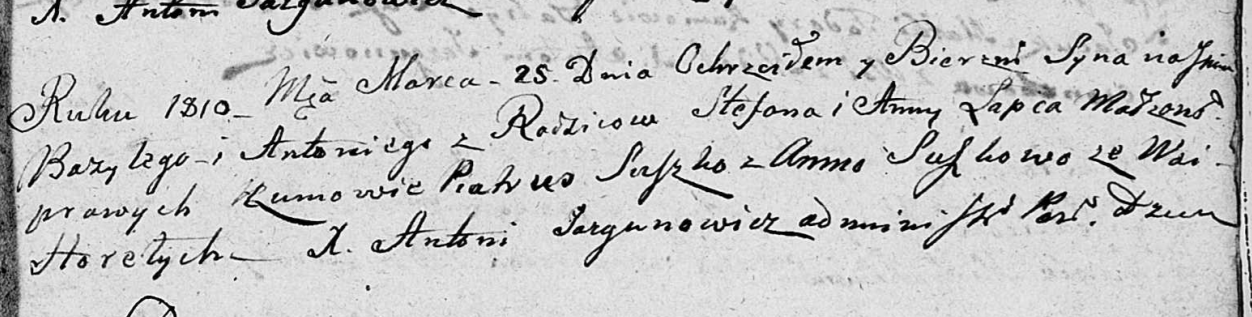 X. Antoni Jazgunowicz
Ruku 1810 Mča Marca 25 Dnia Ochrzciłem y Bierzm Syna na Jmie
Bazylego i Antoniego z Rodzicow Stefana i Anny Łapca Małżons.
prawych Kumowie Piatrus Suszko z Anno Suszkowo ze Wsi
Horełych X. Antoni Jazgunowicz administ. Par.